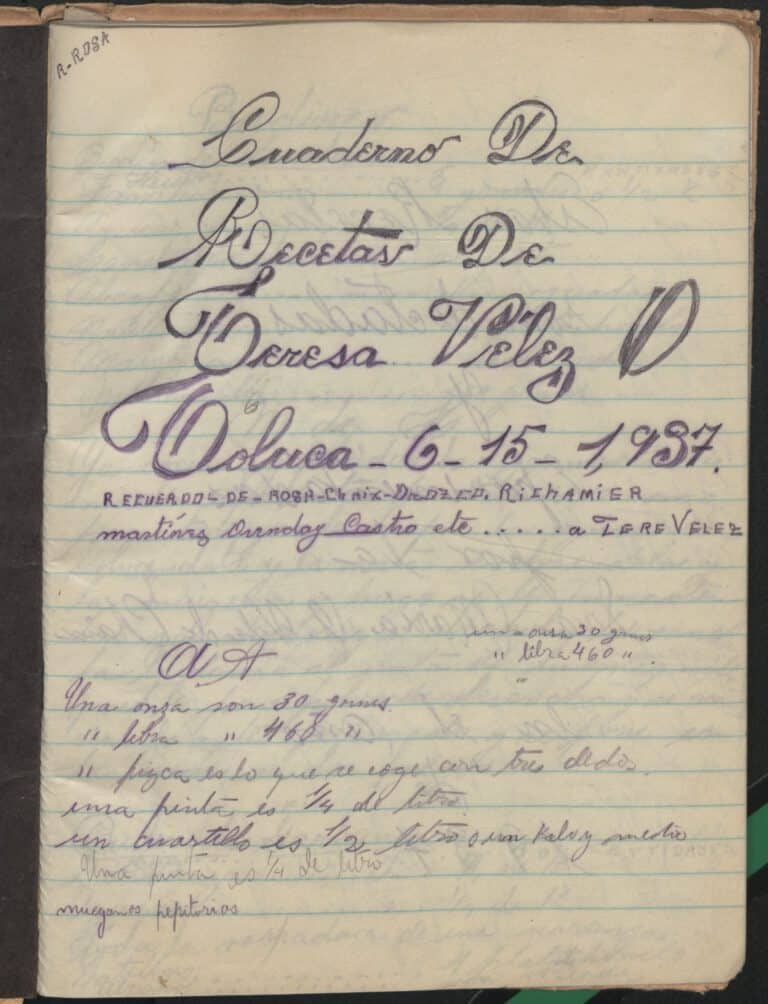 R-ROSA
Cuaderno De
Recetas De
Teresa Vélez O
Toluca - 6 - 15 - 1,937.
RECUERDOS- DE - ROSA - Chaix - OROZCO. RIChAMIER
martínez Castro etc ..... a TERE VELEZ
una onsa 30 grms
" libra 460 ".
"
a A
Una onza son 30 grmes.
" libra " 460 "
" pizca es lo que se coge con tres dedos.
una pinta es 1/4 de litro.
un cuartillo es 1/2 litro o un Kalo y medio
Una pinta es 1/4 de litro
mueganos pepitorias